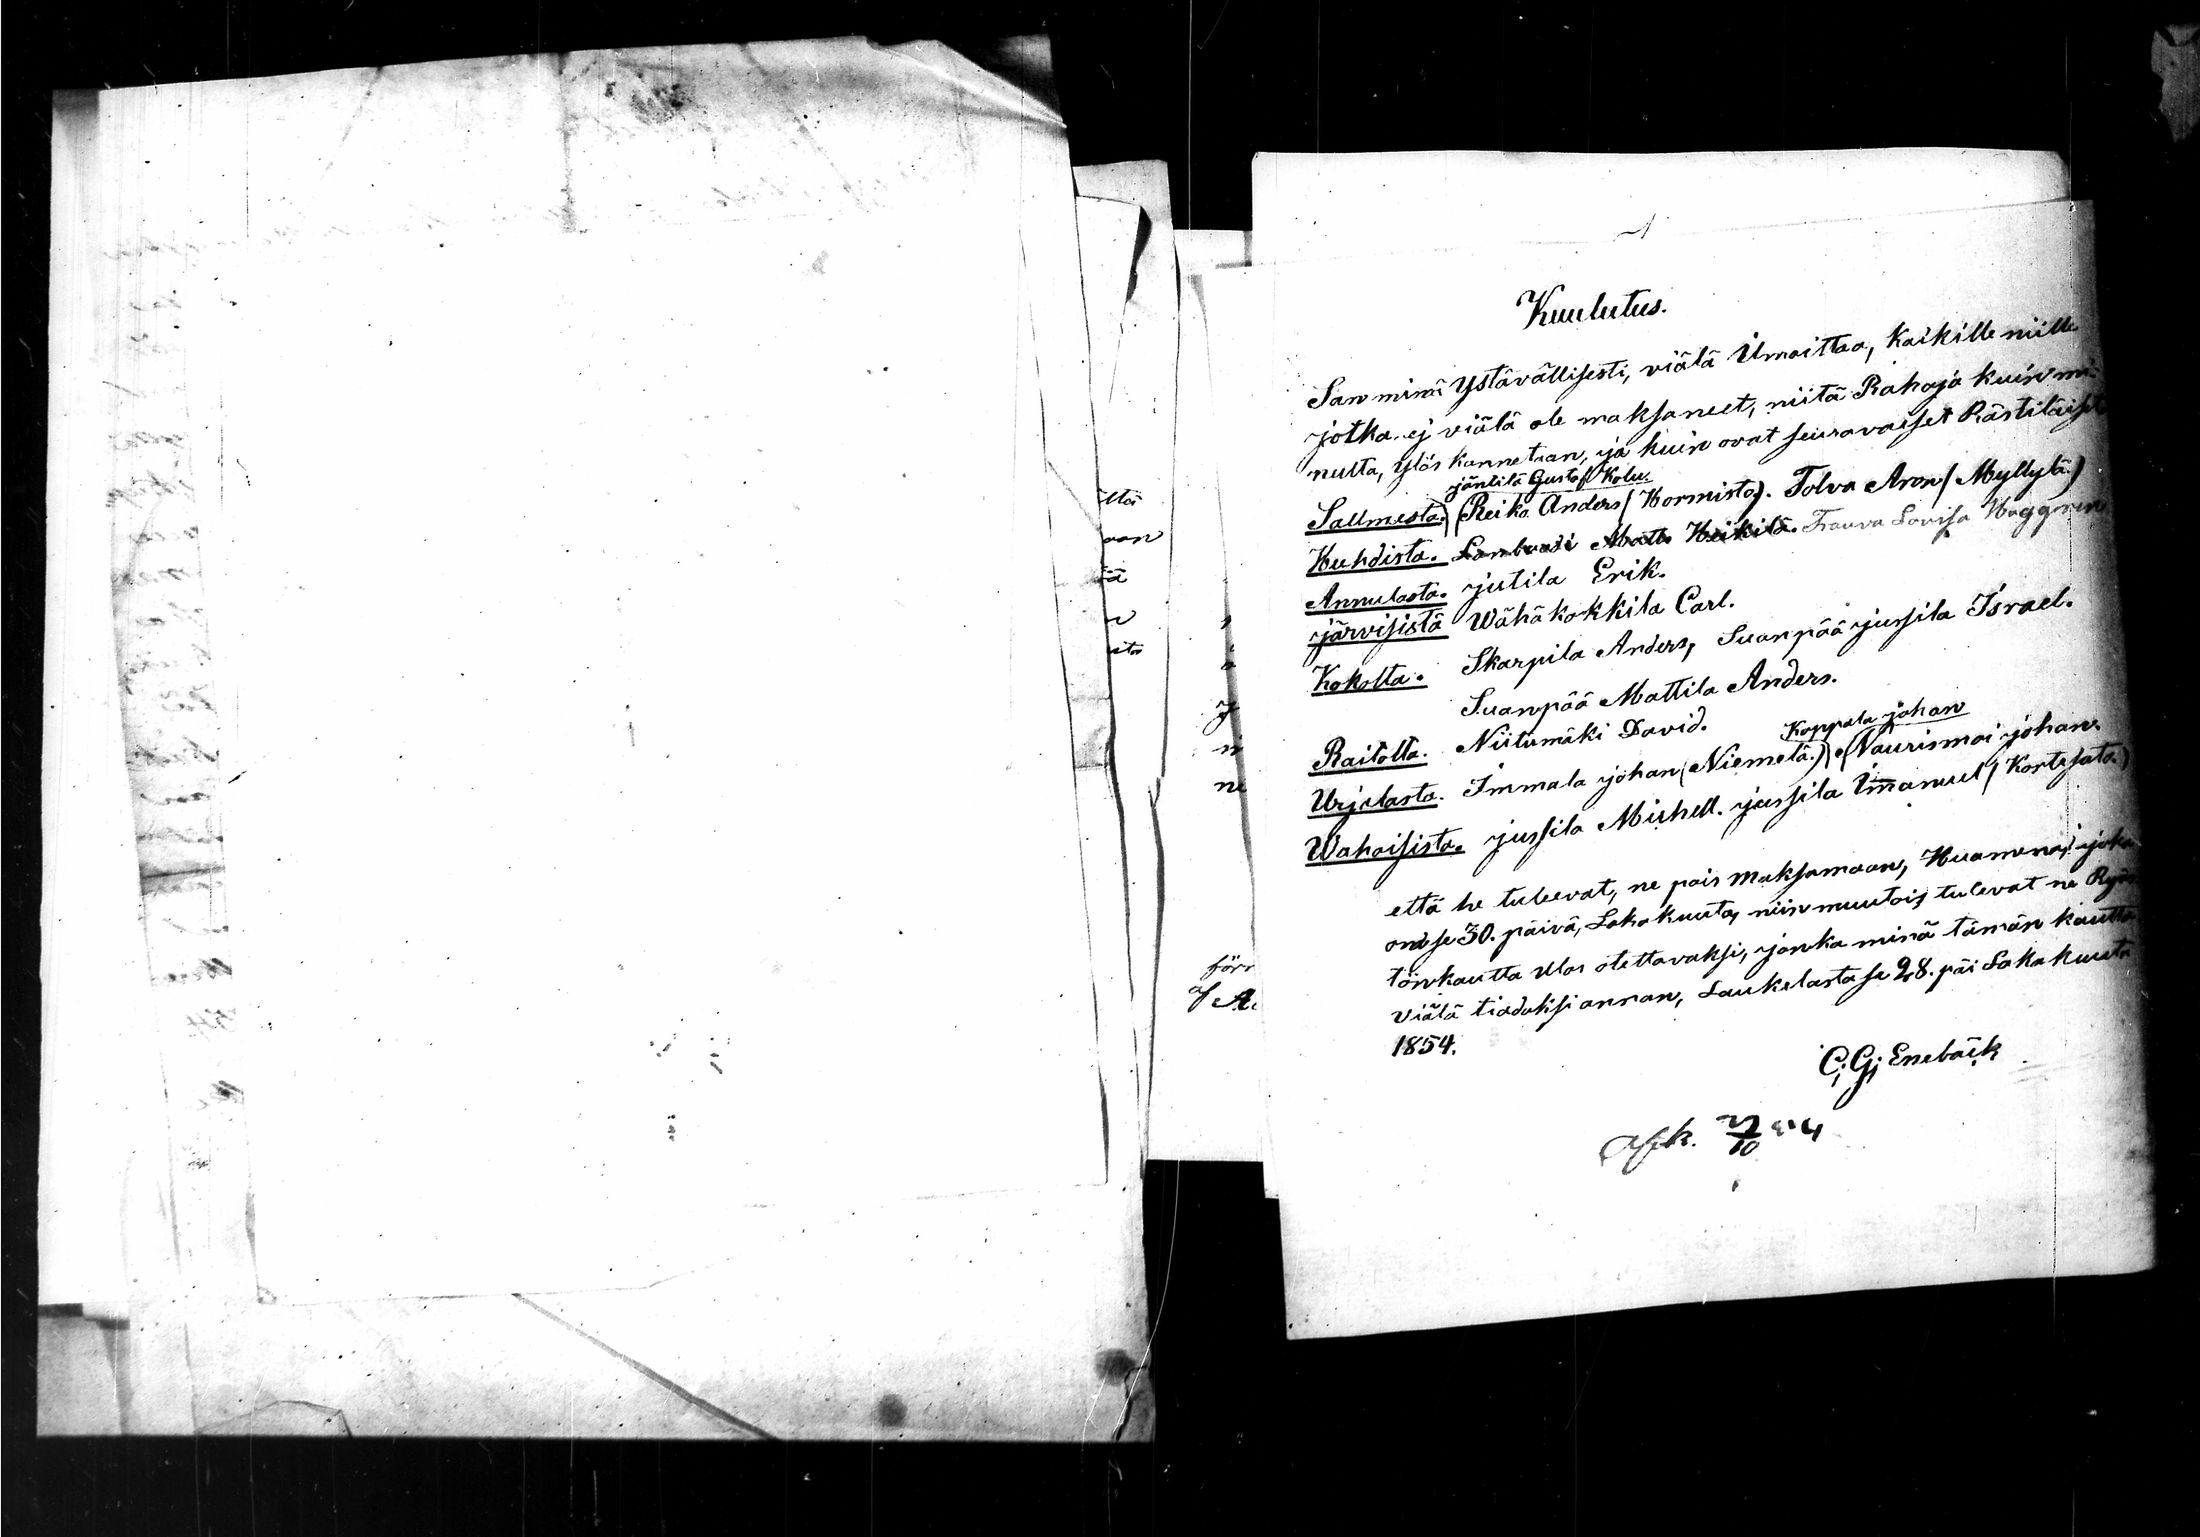 Kuulutus.
San minä ystävällisesti, viälä Ilmoittaa, kaikille niille
jotka ej viälä ole maksaneet, niitä Rahoja kuin mi-
nulta, ylös kannetaan, ja kuin ovat seuravaiset Rästiläiset
jäntilä Gustaf Kolu.
Sallmesta. (Reiko Anders (Hormisto). Tolva Aron (Myllylä.)
Huhdista. Lambuedi Matts Heikilä. Frouva Lovisa Haggren
Annulasta. jutila Erik.
järvisistä Wähäkokkila Carl.
Kokolta. Skarpila Anders, Suanpää jussila Israel.
Suanpää Mattila Anders.
Raitolta. Niitumäki David.
Koppala johan
Urjalasta. Immala johan (Niemelä.) (Naurismai johan.
Wahaisista. jussila Michell. jussila Imanuel (Kortesato.)
että he tuleevat, ne pois maksamaan, Huamena, joka
on se 30. päivä, Lokakuuta, niin muutoij tulevat ne Ryös
tön kautta Ulos otettavaksi, jonka minä tämän kautta
viälä tiadoksi annan, Laukelasta se 28. päi Lokakuuta
1854.
C; G; Enebäck
llä
aan
ä
n
förr
af